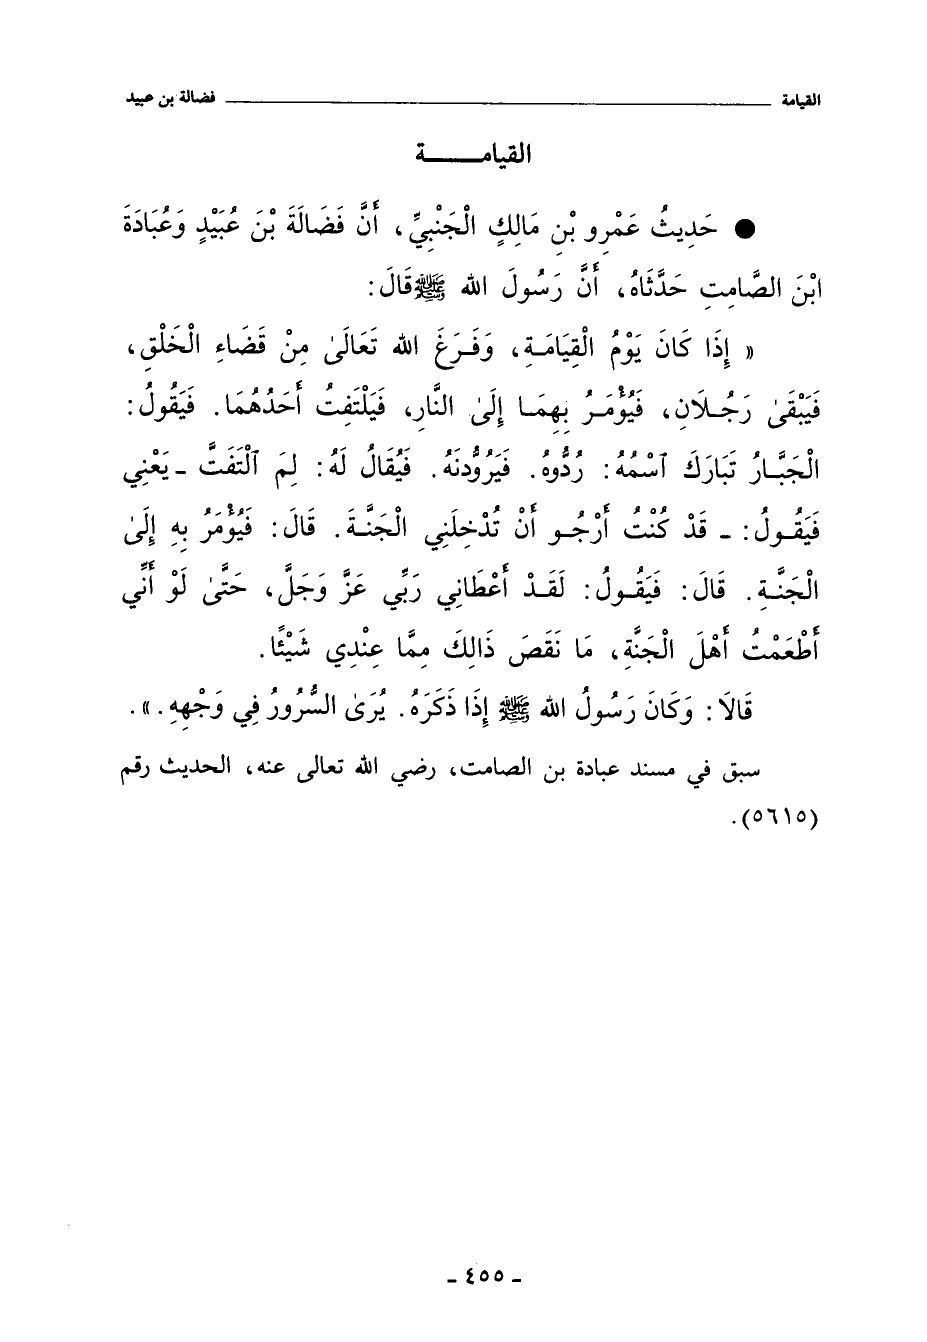 القيامة ــــــــــــــــــــــــــــــــــــــــ فضالة بن عبيد
القيامـــــــة
● حَدِيثُ عَمْرِو بْنِ مَالِكٍ الْجَنْبِيِّ، أَنَّ فَضَالَةَ بْنَ عُبَيْدٍ وَعُبَادَةَ
ابْنَ الصَّامِتِ حَدَّثَاهُ، أَنَّ رَسُولَ الله ﷺ قَالَ:
« إِذَا كَانَ يَوْمُ الْقِيَامَـةِ، وَفَـرَغَ الله تَعَالَىٰ مِنْ قَضَاءِ الْخَلْقِ،
فَيَبْقَىٰ رَجُـلَانِ، فَيُؤْمَـرُ بِهِمَـا إِلَىٰ النَّارِ، فَيَلْتَفِتُ أَحَدُهُمَا. فَيَقُولُ:
الْجَبَّـارُ تَبَارَكَ ٱسْمُهُ: رُدُّوهُ. فَيَرُودُّنَهُ. فَيُقَالُ لَهُ: لِمَ ٱلْتَفَتَّ ـ يَعْنِي
فَيَقُـولُ: ـ قَدْ كُنْتُ أَرْجُـو أَنْ تُدْخِلَنِي الْجَنَّـةَ. قَالَ: فَيُؤْمَرُ بِهِ إِلَىٰ
الْجَنَّـةِ. قَالَ: فَيَقُـولُ: لَقَـدْ أَعْطَانِي رَبِّي عَزَّ وَجَلَّ، حَتَّىٰ لَوْ أَنِّي
أَطْعَمْتُ أَهْلَ الْجَنَّةِ، مَا نَقَصَ ذَالِكَ مِمَّا عِنْدِي شَيْئًا.
قَالَا: وَكَانَ رَسُولُ الله ﷺ إِذَا ذَكَرَهُ. يُرَىٰ السُّرُورُ فِي وَجْهِهِ.».
سبق في مسند عبادة بن الصامت، رضي الله تعالى عنه، الحديث رقم
(٥٦١٥).
ـ ٤٥٥ ـ